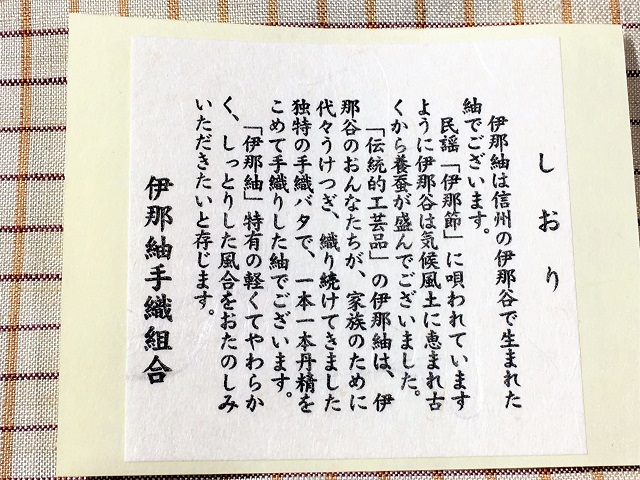 しおり
伊那紬は信州の伊那谷で生まれた
紬でございます。
民謡「伊那節」に唄われています
ように伊那谷は気候風土に恵まれ古
くから養蚕が盛んでございました。
「伝統的工芸品」の伊那紬は、伊
那谷のおんなたちが、家族のために
代々うけつぎ、織り続けてきました
独特の手織バタで、一本一本丹精を
こめて手織りした紬でございます。
「伊那紬」特有の軽くてやわらか
く、しっとりした風合をおたのしみ
いただきたいと存じます。
伊那紬手織組合